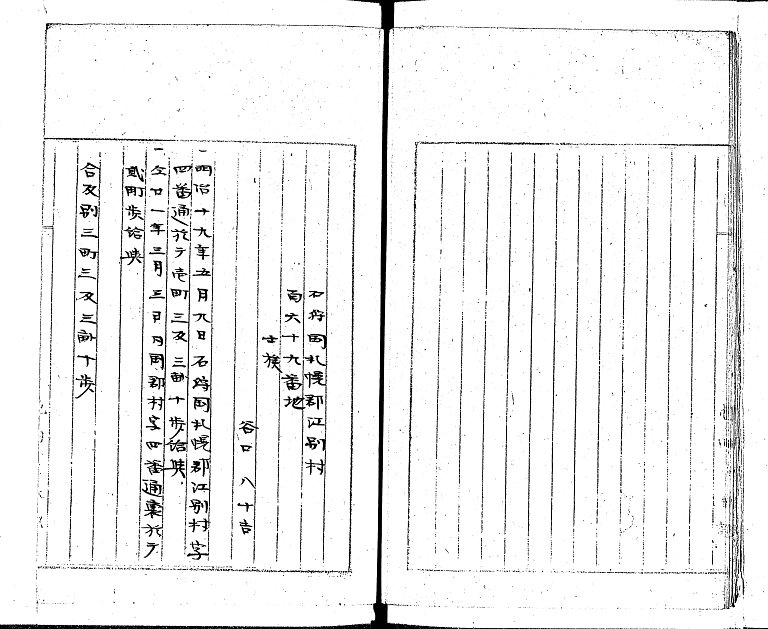 石狩国札幌郡江別村
百六十九番地
士族
谷口八十吉
一明治十九年五月九日石狩国札幌郡江別村字
四番通ニ於テ壱町三反三畝十歩給与
一仝廿一年三月三日同国郡村字四番通裏ニ於テ
貳町歩給与
合反別三町三反三畝十歩